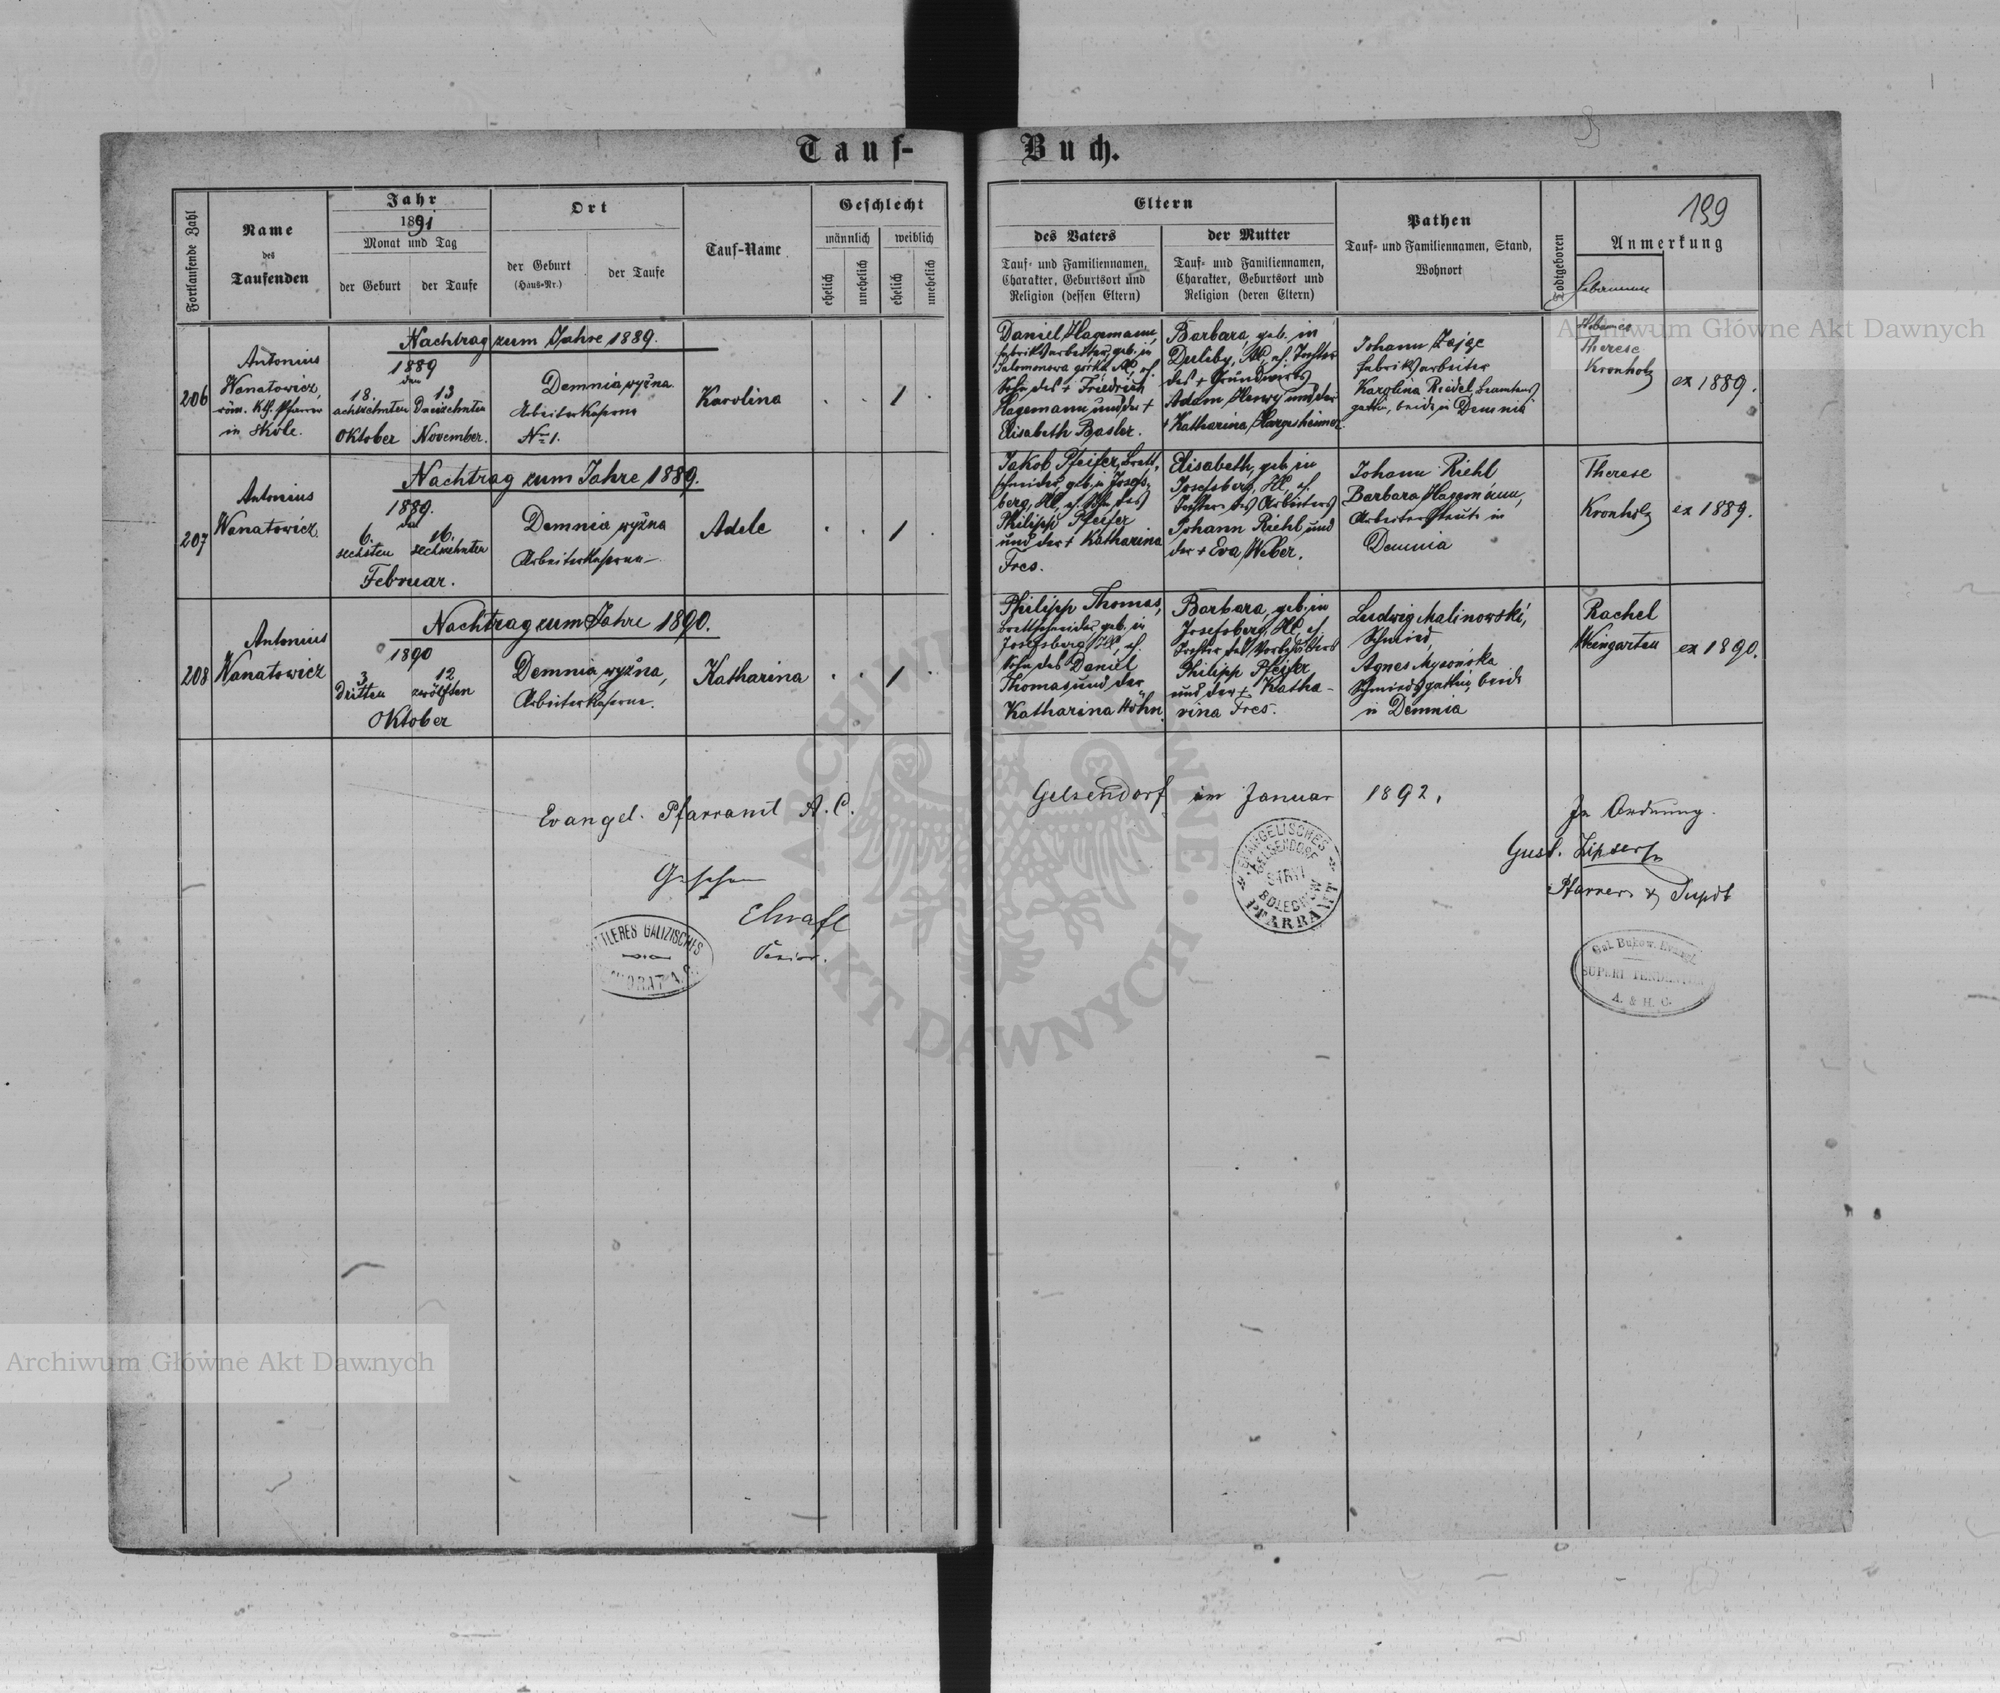 Tauf-Buch.
199
Fortlaufende Zahl
Name
des
Taufenden
Jahr
1891
Monat und Tag
der Geburt
der Taufe
Ort
der Geburt
(Haus-Nr.)
der Taufe
Tauf-Name
Geschlecht
männlich
weiblich
ehelich
unehelich
ehelich
unehelich
Eltern
des Vaters
Tauf- und Familiennamen,
Charakter, Geburtsort und
Religion (dessen Eltern)
der Mutter
Tauf- und Familiennamen,
Charakter, Geburtsort und
Religion (deren Eltern)
Pathen
Tauf- und Familiennamen, Stand,
Wohnort
Todtgeboren
Anmerkung
Hebamme
206
Antonius
Wanatowicz,
röm. kth. Pfarrer
in Skole.
Nachtrag zum Jahre 1889.
1889
den
18. 13
achtzehnten Dreizehnten
Oktober November.
Demnia wyżna
Arbeiterkaserne
No 1.
Karolina
. . 1 .
Daniel Hagemann,
Fabriksarbeiter, geb. in
Salomonowa górka, AC, ehl.
Sohn des + Friedrich
Hagemann und der +
Elisabeth Basler.
Barbara, geb. in
Duliby, AC, ehl. Tochter
des + Grundwirts
Adam Henry und der
+ Katharina Hargesheimer.
Johann Zajge
Fabriksarbeiter
Karolina Riedel, Beamtens
gattin, beide in Demnia
Hebamme
Therese
Kronholz
ex 1889.
207
Antonius
Wanatowicz
Nachtrag zum Jahre 1889.
1889.
den
6. 16.
sechsten sechzehnten
Februar.
Demnia wyżna
Arbeiterkaserne
Adele
. . 1 .
Jakob Pfeifer, Brett-
schneider, geb. in Josefs-
berg, HC, ehl. Sohn des
Philipp Pfeifer
und der + Katharina
Fres.
Elisabeth, geb. in
Josefsberg, HC, ehl.
Tochter des Arbeiters
Johann Riehl und
der + Eva Weber.
Johann Riehl
Barbara Hagemann,
Arbeitersleute in
Demnia
Therese
Kronholz
ex 1889.
208
Antonius
Wanatowicz
Nachtrag zum Jahre 1890.
1890
3. 12.
Dritten zwölften
Oktober
Demnia wyżna,
Arbeiterkaserne.
Katharina
. . 1 .
Philipp Thomas,
Brettschneider, geb. in
Josefsberg, HC, ehl.
Sohn des Daniel
Thomas und der
Katharina Höhn.
Barbara, geb. in
Josefsberg, HC, ehl.
Tochter des Vorarbeiters
Philipp Pfeifer
und der + Katha-
rina Fres.
Ludwig Malinowski,
Schmied,
Agnes Mysońska
Schmiedsgattin, beide
in Demnia
Rachel
Weingarten
ex 1890.
Evangel. Pfarramt A. C. Gelsendorf im Januar 1892.
Gesehen
Senior.
MITTLERES GALIZISCHES
SENIORAT A. C.
EVANGELISCHES
PFARRAMT
GELSENDORF
STRYI
BOLECHOW
In Ordnung.
Gust.
Pfarrer & Supdt
Gal. Bukow. Evangl.
SUPERINTENDENTUR
A. & H. C.
Archiwum Główne Akt Dawnych
Archiwum Główne Akt Dawnych
ARCHIWUM GŁÓWNE AKT DAWNYCH